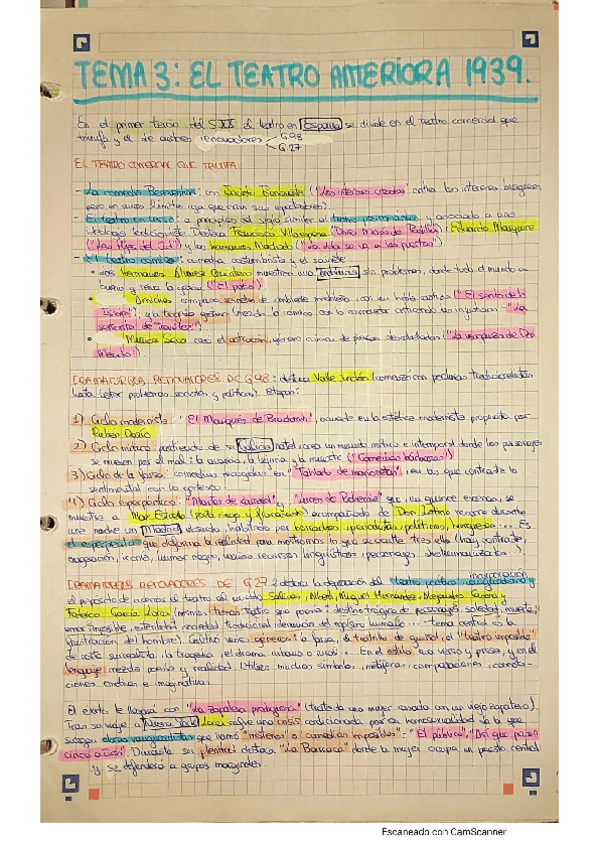 TEMA 3: EL TEATRO ANTERIOR A 1939.
En el primer tercio del SXX el teatro en España se divide en el teatro comercial que
triunfa y el de autores renovadores G98
G.27
EL TEATRO COMERCIAL QUE TRIUNFA
- La comedia Benaventina: con Jacinto Benavente ("Los intereses creados" critica los intereses burgueses,
pero en unos límites
- El teatro en verso: a principios del siglo similar al teatro y asociado a una
ideología tradicionalista. Destaca Francisco Villaespesa (Doña María de Padilla), Eduardo Marquina
("Las hijas del Cid") y los hermanos Machado ("La Lola se va a los puertos")
- El teatro cómico: comedia costumbrista y el sainete
• Los hermanos Álvarez Quintero muestran una Andalucía sin problemas, donde todo el mundo es
bueno y reina la gracia ("El patio").
• Arniches compuso sainetes de ambiente madrileño con un habla castiza ("El santo de la
Isidra") y la tragedia grotesca (mezcla lo cómico con lo conmovedor criticando las injusticias "La
señorita de Trevélez")
• Muñoz Seca creó el astracán, género cómico de piezas descabelladas ("La venganza de Don
Mendo")
DRAMATURGOS RENOVADORES DE G98: destaca Valle Inclán (comenzó con posturas tradicionalistas
hasta tratar problemas sociales y políticos). Etapas:
1) Ciclo modernista: "El Marqués de Bradomín", acuerde en la estética modernista propuesta por
Rubén Darío
2) Ciclo mítico: partiendo de su Galicia natal, crea un mundo mítico e intemporal donde los personajes
se mueven por el mal: la crueldad, la lujuria y la muerte ("Comedias bárbaras")
3) Ciclo de la farsa: comedias recogidas en "Tablado de marionetas", en las que contrasta lo
sentimental con lo grotesco.
4) Ciclo esperpéntico: "Martes de carnaval" y "Luces de Bohemia" que, en quince escenas, se
muestra a Max Estrella (poeta ciego y fracasado) acompañado de Don Latino recorre durante
una noche un Madrid absurdo, habitado por borrachos, periodistas, políticos, burgueses... Es
el esperpento que deforma la realidad para mostrarnos lo que se oculta tras ella (hay contraste,
exageración, ironía, humor negro, varios recursos lingüísticos, personajes deshumanizados...).
DRAMATURGOS RENOVADORES DE G27: destaca la depuración del teatro poético, incorporación vanguardismo y
el propósito de acercar el teatro al pueblo. Salinas, Alberti, Miguel Hernández, Alejandro Casona y
Federico García Lorca (mismos temas teatro que poesía: destino trágico de personajes, soledad, muerte,
amor imposible, esterilidad, moralidad tradicional, denuncia del egoísmo humano... - tema central es la
frustración del hombre). Cultivó varios géneros: la farsa, el teatrillo de guiñol, el "teatro imposible"
de corte surrealista, la tragedia, el drama urbano o rural... En el estilo usa verso y prosa, y en el
lenguaje mezcla poesía y realidad. Utiliza muchos símbolos, metáforas, comparaciones, connota-
ciones creativas e imaginativas.
El éxito le llegará con "La zapatera prodigiosa" (trata de una mujer casada con un viejo zapatero).
Tras su viaje a Nueva York Lorca sufre una crisis condicionada por su homosexualidad de la que
surgen obras vanguardistas que llamó "misterios" o "comedias imposibles": "El público", "Así que pasen
cinco años". Durante su plenitud destaca "La Barraca" donde la mujer ocupa un puesto central
y se defenderá a grupos marginales.
Escaneado con CamScanner